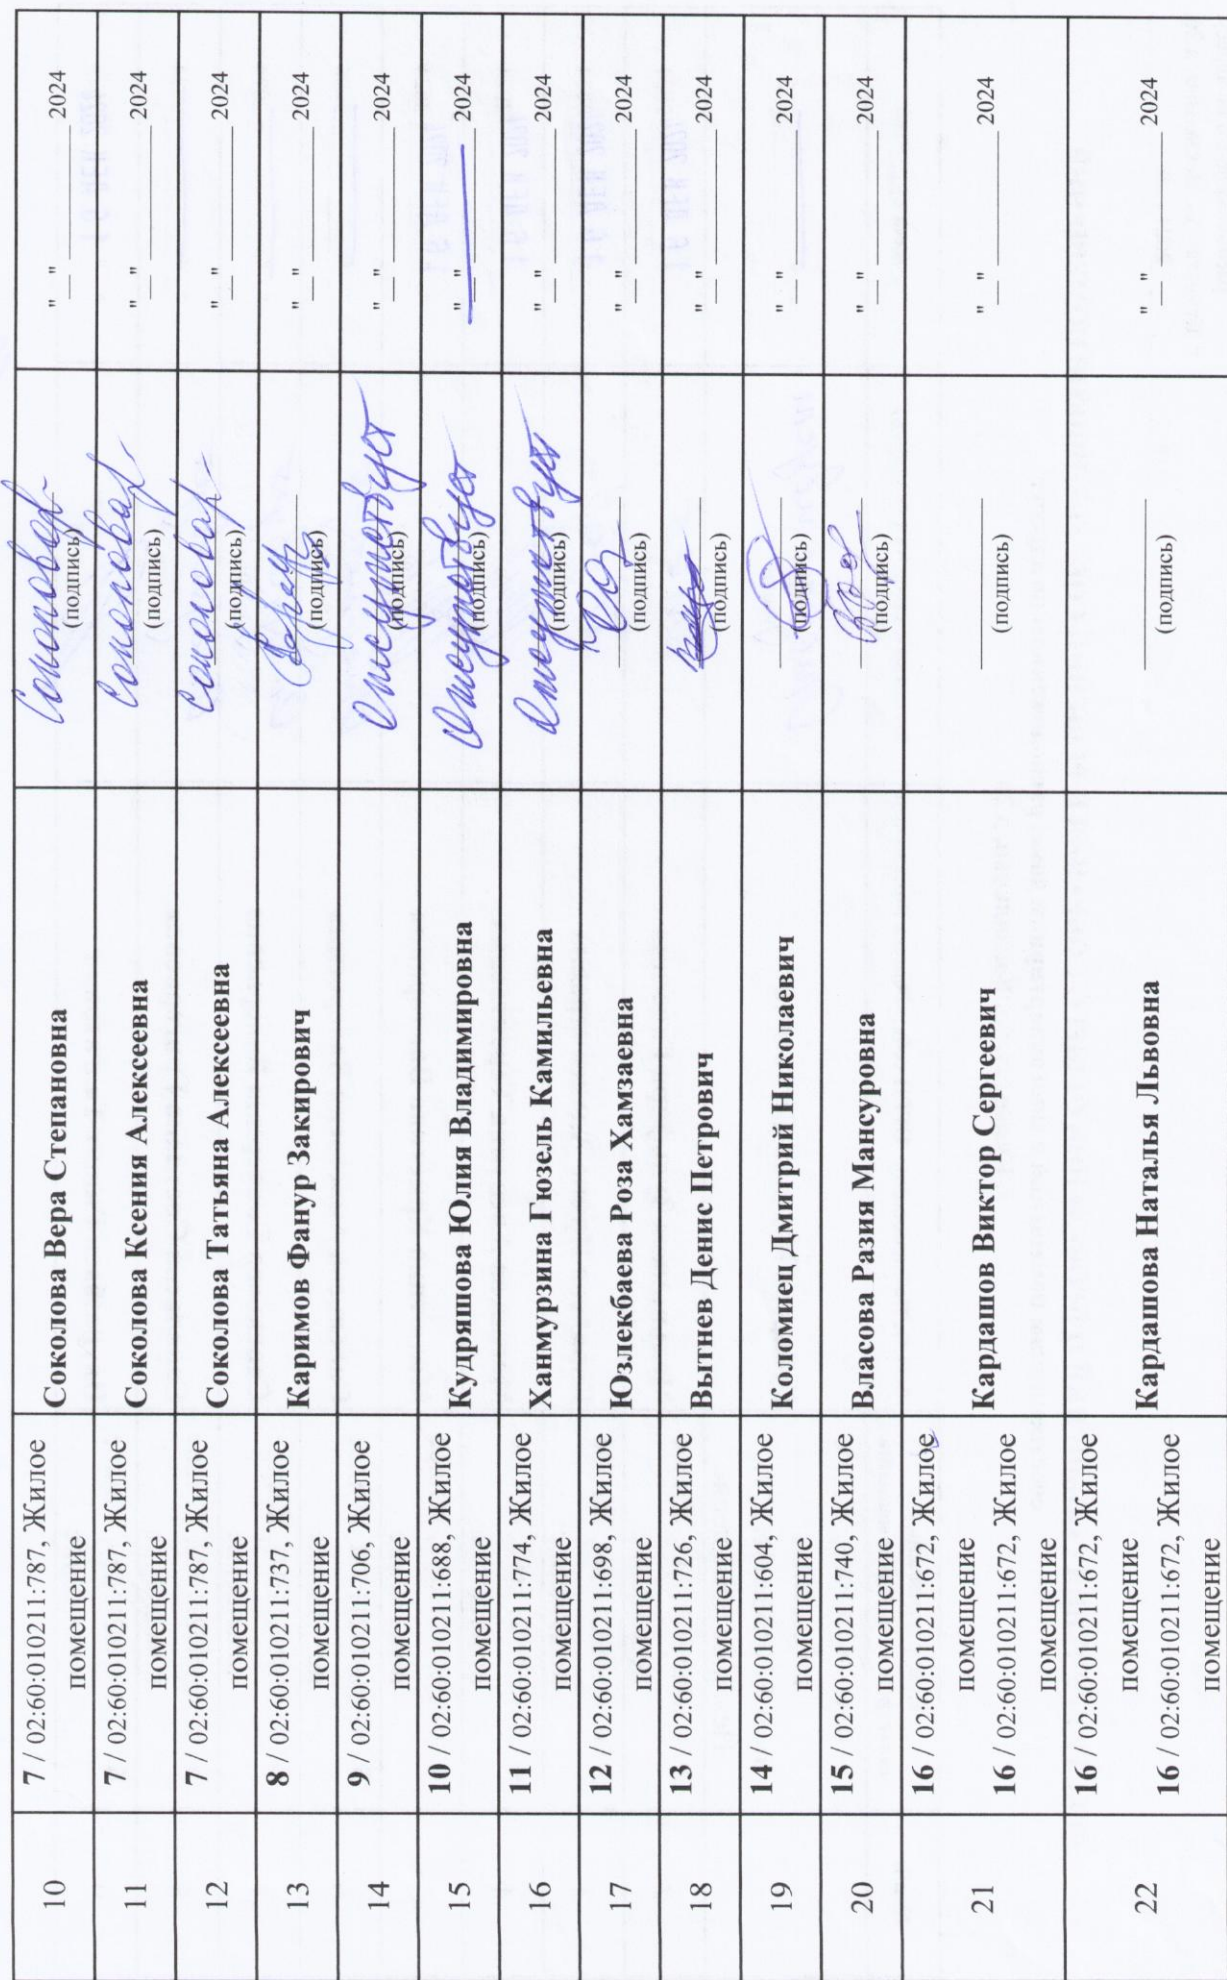 10
7 / 02:60:010211:787, Жилое
помещение
Соколова Вера Степановна
Соколова
(подпись)
"__" ________ 2024
11
7 / 02:60:010211:787, Жилое
помещение
Соколова Ксения Алексеевна
Соколова
(подпись)
"__" ________ 2024
12
7 / 02:60:010211:787, Жилое
помещение
Соколова Татьяна Алексеевна
Соколова
(подпись)
"__" ________ 2024
13
8 / 02:60:010211:737, Жилое
помещение
Каримов Фанур Закирович
(подпись)
"__" ________ 2024
14
9 / 02:60:010211:706, Жилое
помещение
Отсутствует
(подпись)
"__" ________ 2024
15
10 / 02:60:010211:688, Жилое
помещение
Кудряшова Юлия Владимировна
Отсутствует
(подпись)
"__" ________ 2024
16
11 / 02:60:010211:774, Жилое
помещение
Ханмурзина Гюзель Камильевна
Отсутствует
(подпись)
"__" ________ 2024
17
12 / 02:60:010211:698, Жилое
помещение
Юзлекбаева Роза Хамзаевна
(подпись)
"__" ________ 2024
18
13 / 02:60:010211:726, Жилое
помещение
Вытнев Денис Петрович
(подпись)
"__" ________ 2024
19
14 / 02:60:010211:604, Жилое
помещение
Коломиец Дмитрий Николаевич
(подпись)
"__" ________ 2024
20
15 / 02:60:010211:740, Жилое
помещение
Власова Разия Мансуровна
(подпись)
"__" ________ 2024
21
16 / 02:60:010211:672, Жилое
помещение
16 / 02:60:010211:672, Жилое
помещение
Кардашов Виктор Сергеевич
(подпись)
"__" ________ 2024
22
16 / 02:60:010211:672, Жилое
помещение
16 / 02:60:010211:672, Жилое
помещение
Кардашова Наталья Львовна
(подпись)
"__" ________ 2024